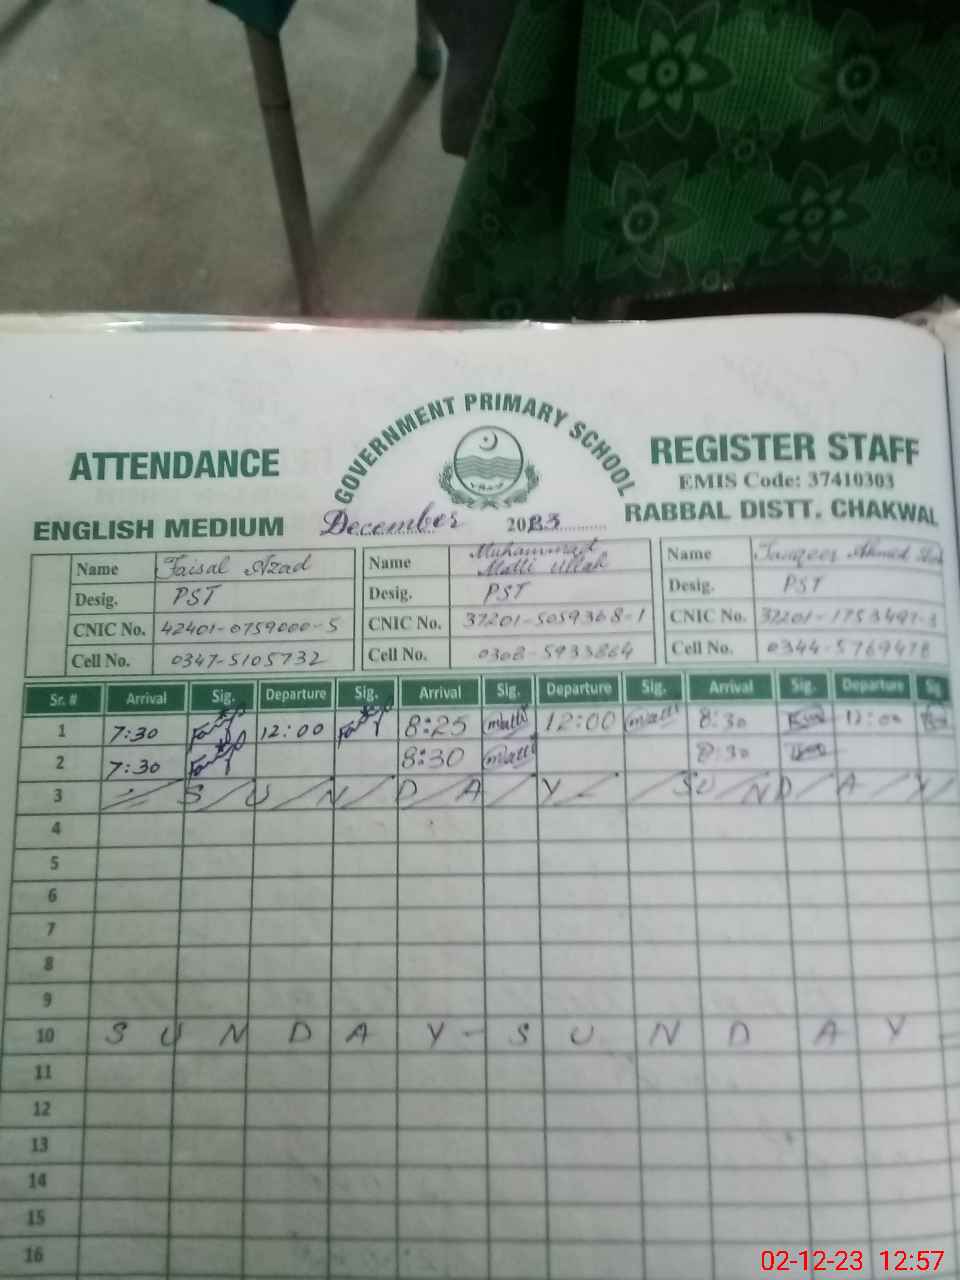 GOVERNMENT PRIMARY SCHOOL
ATTENDANCE REGISTER STAFF
EMIS Code: 37410303
ENGLISH MEDIUM December 2023 RABBAL DISTT. CHAKWAL
Name Faisal Azad Name Muhammad Matti Ullah Name Ahmed
Desig. PST Desig. PST Desig. PST
CNIC No. 42401-0759000-5 CNIC No. 37201-5059368-1 CNIC No. 37201-1753497-3
Cell No. 0347-5105732 Cell No. 0308-5933864 Cell No. 0344-5769478
Sr. # Arrival Sig. Departure Sig. Arrival Sig. Departure Sig. Arrival Sig. Departure Sig
1 7:30 12:00 8:25 Matti 12:00 Matti 8:30 12:00
2 7:30 8:30 Matti 8:30
3 S U N D A Y S U N D A Y
4
5
6
7
8
9
10 S U N D A Y - S U N D A Y
11
12
13
14
15
16
02-12-23 12:57